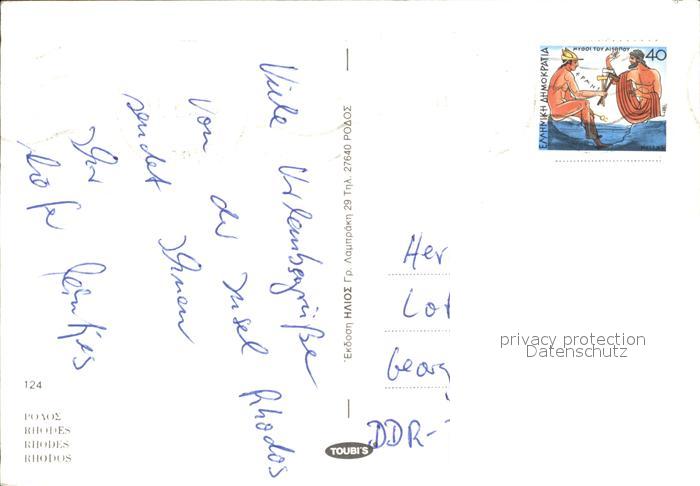 Viele Urlaubsgrüße
von der Insel Rhodos
sendet Ihnen
Ihr
124
ΡΟΔΟΣ
RHODES
RHODES
RHODOS
Έκδοση ΗΛΙΟΣ Γρ. Λαμπράκη 29 Τηλ. 27640 ΡΟΔΟΣ
TOUBI'S
ΜΥΘΟΙ ΤΟΥ ΑΙΣΩΠΟΥ
40
ΕΛΛΗΝΙΚΗ ΔΗΜΟΚΡΑΤΙΑ
ΕΡΜΗΣ
HELLAS
Her
Lot
Georg
DDR-
privacy protection
Datenschutz